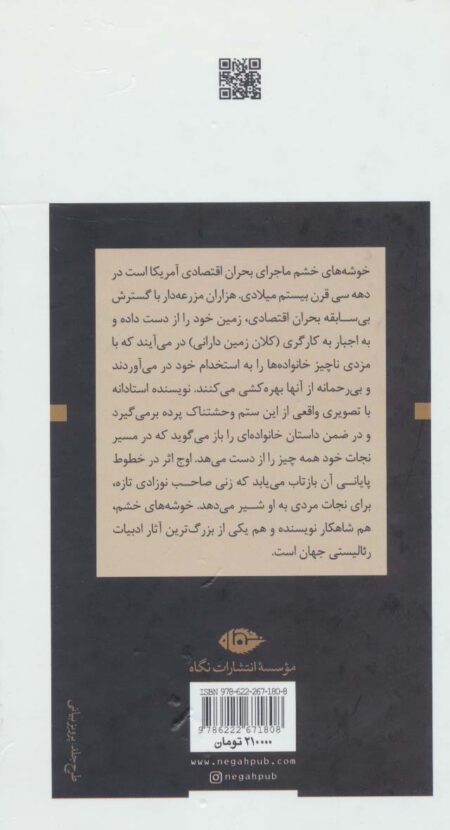 خوشه‌های خشم ماجرای بحران اقتصادی آمریکا است در
دهه سی قرن بیستم میلادی. هزاران مزرعه‌دار با گسترش
بی‌سابقه بحران اقتصادی، زمین خود را از دست داده و
به اجبار به کارگری (کلان زمین دارانی) در می‌آیند که با
مزدی ناچیز خانواده‌ها را به استخدام خود در می‌آورند
و بی‌رحمانه از آنها بهره‌کشی می‌کنند. نویسنده استادانه
با تصویری واقعی از این ستم وحشتناک پرده برمی‌گیرد
و در ضمن داستان خانواده‌ای را باز می‌گوید که در مسیر
نجات خود همه چیز را از دست می‌هد. اوج اثر در خطوط
پایانی آن بازتاب می‌یابد که زنی صاحب نوزادی تازه،
برای نجات مردی به او شیر می‌دهد. خوشه‌های خشم،
هم شاهکار نویسنده و هم یکی از بزرگ‌ترین آثار ادبیات
رئالیستی جهان است.
مؤسسهٔ انتشارات نگاه
ISBN 978-622-267-180-8
9 786222 671808
۲۱۰۰۰۰ تومان
www.negahpub.com
negahpub
طرح جلد: پرویز بیانی